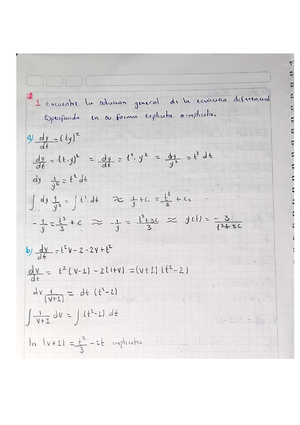 1 Encuentre la solucion general de la ecuacion diferencial
Expresada en su forma explicita o implicita.
a) dy/dt = (ty)²
dy/dt = (t·y)² = dy/dt = t²·y² = dy/y² = t² dt
dy 1/y² = t² dt
∫ dy 1/y² = ∫ t² dt ≈ 1/y + c₁ = t³/3 + c₂
- 1/y = t³/3 + c ≈ - 1/y = t³+3c/3 ≈ y(t) = - 3/t³+3c
b) dv/dt = t²v-2-2v+t²
dv/dt = t² (v-1) - 2(1+v) = (v+1) (t²-2)
dv 1/(v+1) = dt (t²-2)
∫ 1/v+1 dv = ∫ (t²-2) dt
ln |v+1| = t³/3 - 2t implicita